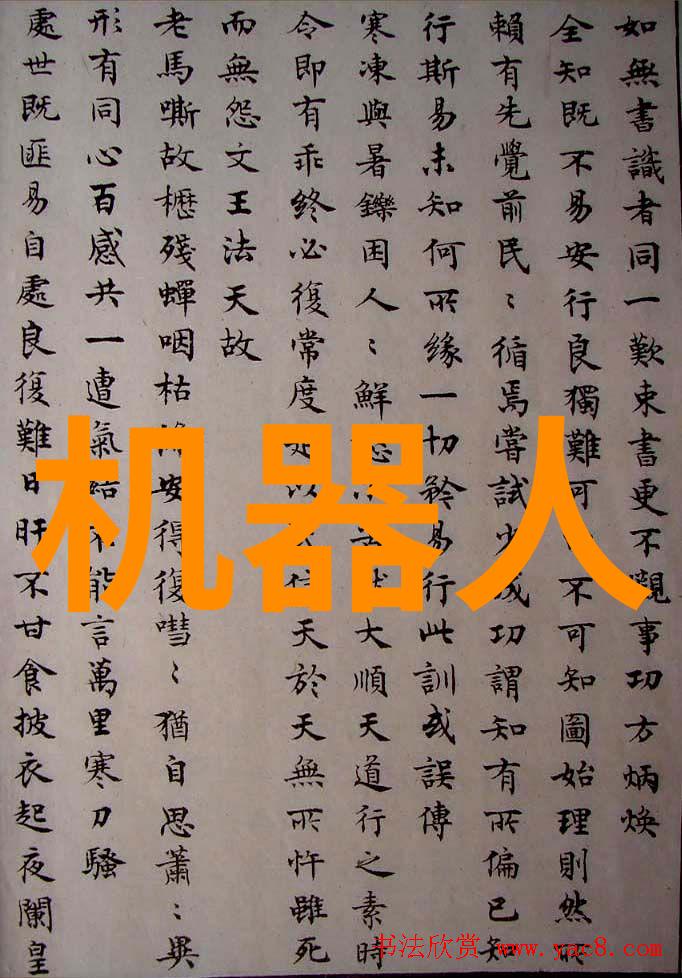 如無書識者同一歎束書更不觀事功方炳煥
全知既不易安行良獨難可不可知圖始理則然所
賴有先覺前民〻循焉嘗試少成功謂知有所偏已知
行斯易未知何所緣一切矜易行此訓或誤傳
寒凍與暑鑠困人〻鮮大順天道行之素時
令即有乖終必復常度是以天於天無所忤雖死
而無怨文王法天故
老馬嘶故櫪殘蟬咽枯安得復嘒〻猶自思蕭〻異
形有同心百感共一遭氣結不能言萬里寒刀騷
處世既匪易自處良復難日旰不甘食披衣起夜闌皇
机器人
书法欣赏 www.yac8.com